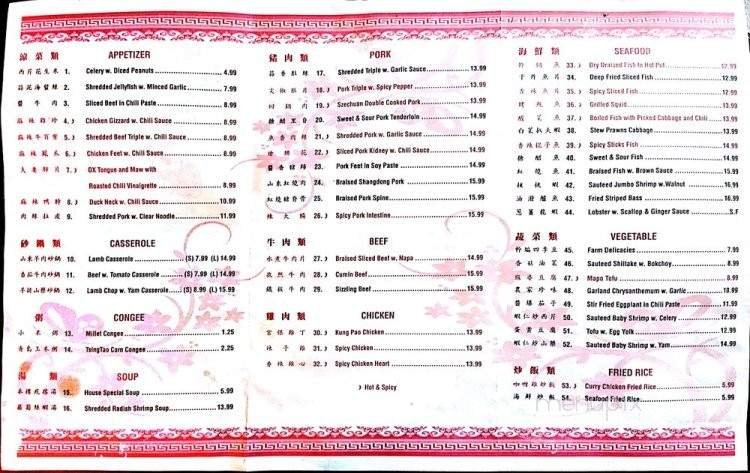 涼菜類 APPETIZER
西芹花生米 1. Celery w. Diced Peanuts 4.99
蒜泥海蜇絲 2. Shredded Jellyfish w. Minced Garlic 7.99
醬牛肉 3. Sliced Beef in Chili Paste 8.99
麻辣雞珍 4. Chicken Gizzard w. Chili Sauce 8.99
麻辣牛百葉 5. Shredded Beef Triple w. Chili Sauce 8.99
麻辣鳳爪 6. Chicken Feet w. Chili Sauce 8.99
夫妻肺片 7. OX Tongue and Maw with
Roasted Chili Vinaigrette 8.99
麻辣鴨脖 8. Duck Neck w. Chili Sauce 10.99
肉絲拉皮 9. Shredded Pork w. Clear Noodle 11.99
砂鍋類 CASSEROLE
山東羊肉砂鍋 10. Lamb Casserole (S) 7.99 (L) 14.99
番茄牛肉砂鍋 11. Beef w. Tomato Casserole (S) 7.99 (L) 14.99
羊排山藥砂鍋 12. Lamb Chop w. Yam Casserole (S) 8.99 (L) 15.99
粥 CONGEE
小米粥 13. Millet Congee 1.25
青島玉米粥 14. TsingTao Corn Congee 2.25
湯類 SOUP
本樓疙瘩湯 15. House Special Soup 5.99
蘿蔔絲蝦湯 16. Shredded Radish Shrimp Soup 13.99
豬肉類 PORK
蒜香肚絲 17. Shredded Triple w. Garlic Sauce 13.99
尖椒肚片 18. Pork Triple w. Spicy Pepper 13.99
回鍋肉 19. Szechuan Double Cooked Pork 13.99
糖醋里脊 20. Sweet & Sour Pork Tenderloin 14.99
魚香肉絲 21. Shredded Pork w. Garlic Sauce 14.99
熗腰花 22. Sliced Pork Kidney w. Chili Sauce 14.99
醬香豬蹄 23. Pork Feet in Soy Paste 14.99
山東紅燒肉 24. Braised Shangdong Pork 15.99
紅燒豬脊骨 25. Braised Pork Spine 15.99
辣大腸 26. Spicy Pork Intestine 15.99
牛肉類 BEEF
水煮牛肉片 27. Braised Sliced Beef w. Napa 14.99
孜然牛肉 28. Cumin Beef 15.99
鐵板牛肉 29. Sizzling Beef 15.99
雞肉類 CHICKEN
宮爆雞丁 30. Kung Pao Chicken 13.99
辣子雞 31. Spicy Chicken 13.99
香辣雞心 32. Spicy Chicken Heart 13.99
Hot & Spicy
海鮮類 SEAFOOD
幹鍋魚 33. Dry Braised Fish in Hot Pot 12.99
干炸魚片 34. Deep Fried Sliced Fish 12.99
香辣魚片 35. Spicy Sliced Fish 12.99
烤魷魚 36. Grilled Squid 13.99
酸菜魚 37. Boiled Fish with Picked Cabbage and Chili 13.99
白菜扒大蝦 38. Stew Prawns Cabbage 13.99
香辣棍子魚 39. Spicy Slicks Fish 13.99
糖醋魚 40. Sweet & Sour Fish 14.99
紅燒魚 41. Braised Fish w. Brown Sauce 15.99
核桃蝦 42. Sauteed Jumbo Shrimp w.Walnut 16.99
油潑鱸魚 43. Fried Striped Bass 16.99
蔥薑龍蝦 44. Lobster w. Scallop & Ginger Sauce S.F
蔬菜類 VEGETABLE
幹煸四季豆 45. Farm Delicacies 7.99
香菇油菜 46. Sauteed Shiitake w. Bokchoy 8.99
麻婆豆腐 47. Mapo Tofu 8.99
農家珍味 48. Garland Chrysanthemum w. Garlic 8.99
醬爆茄子 49. Stir Fried Eggplant in Chili Paste 11.99
蝦仁炒西芹 50. Sauteed Baby Shrimp w. Celery 12.99
蛋黃豆腐 51. Tofu w. Egg Yolk 12.99
蝦仁炒山藥 52. Sauteed Baby Shrimp w. Yam 14.99
炒飯類 FRIED RICE
咖喱雞炒飯 53. Curry Chicken Fried Rice 5.99
海鮮炒飯 54. Seafood Fried Rice 5.99
menupix